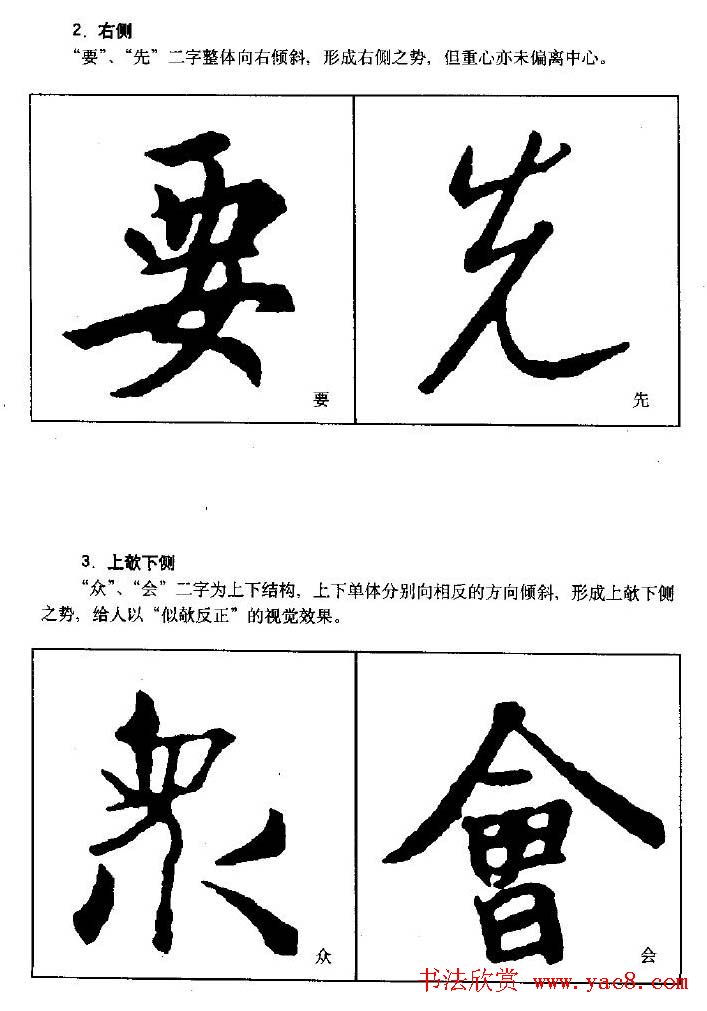 2. 右侧
“要”、“先”二字整体向右倾斜，形成右侧之势，但重心亦未偏离中心。
要 先
要 先
3. 上欹下侧
“众”、“会”二字为上下结构，上下单体分别向相反的方向倾斜，形成上欹下侧
之势，给人以“似欹反正”的视觉效果。
眾 會
众 会
书法欣赏 www.yac8.com